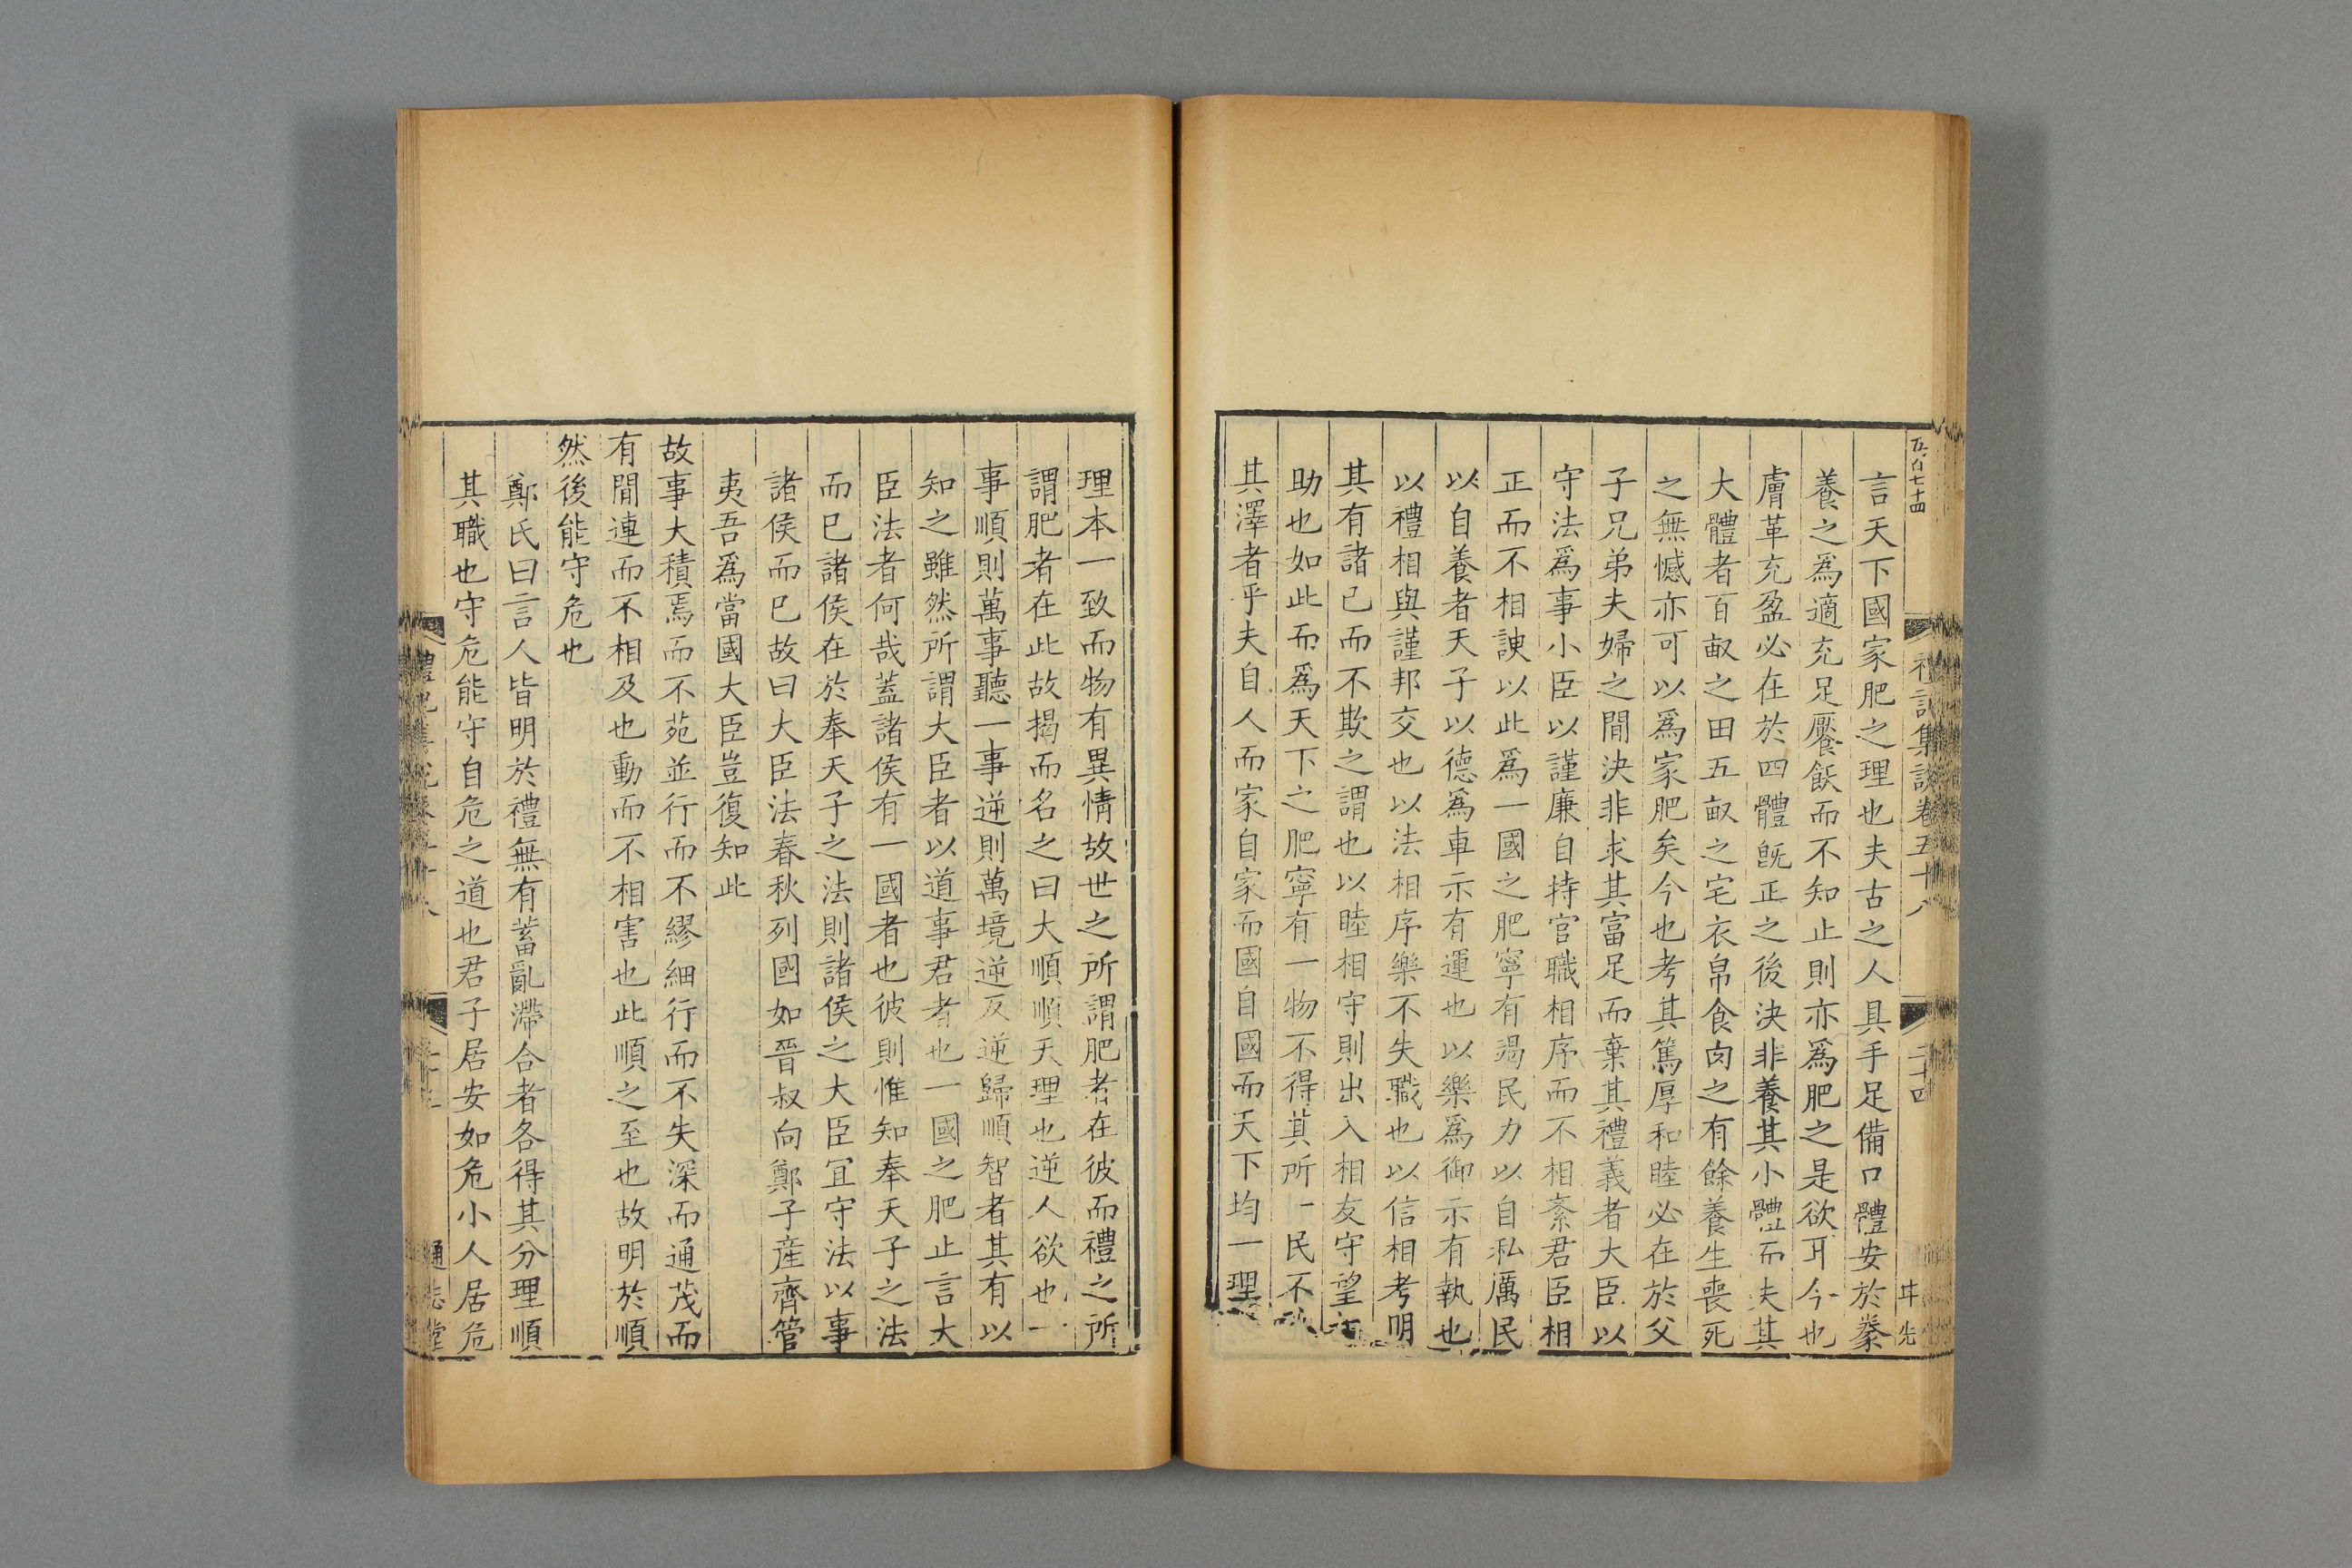 五百七十四
禮記集說卷五十八
二十四
先
言天下國家肥之理也夫古之人具手足備口體安於豢
養之爲適充足饜飫而不知止則亦爲肥之是欲耳今也
膚革充盈必在於四體既正之後決非養其小體而夫其
大體者百畝之田五畝之宅衣帛食肉之有餘養生喪死
之無憾亦可以爲家肥矣今也考其篤厚和睦必在於父
子兄弟夫婦之間決非求其富足而棄其禮義者大臣以
守法爲事小臣以謹廉自持官職相序而不相紊君臣相
正而不相諛以此爲一國之肥寧有竭民力以自私厲民
以自養者天子以德爲車示有運也以樂爲御示有執也
以禮相與謹邦交也以法相序樂不失職也以信相考明
其有諸已而不欺之謂也以睦相守則出入相友守望
助也如此而爲天下之肥寧有一物不得其所一民不
其澤者乎夫自人而家自家而國自國而天下均一理
理本一致而物有異情故世之所謂肥者在彼而禮之所
謂肥者在此故揭而名之曰大順順天理也逆人欲也一
事順則萬事聽一事逆則萬境逆反逆歸順智者其有以
知之雖然所謂大臣者以道事君者也一國之肥止言大
臣法者何哉蓋諸侯有一國者也彼則惟知奉天子之法
而已諸侯在於奉天子之法則諸侯之大臣宜守法以事
諸侯而已故曰大臣法春秋列國如晉叔向鄭子産齊管
夷吾爲當國大臣豈復知此
故事大積焉而不苑並行而不繆細行而不失深而通茂而
有間連而不相及也動而不相害也此順之至也故明於順
然後能守危也
鄭氏曰言人皆明於禮無有蓄亂滯合者各得其分理順
其職也守危能守自危之道也君子居安如危小人居危
通志堂